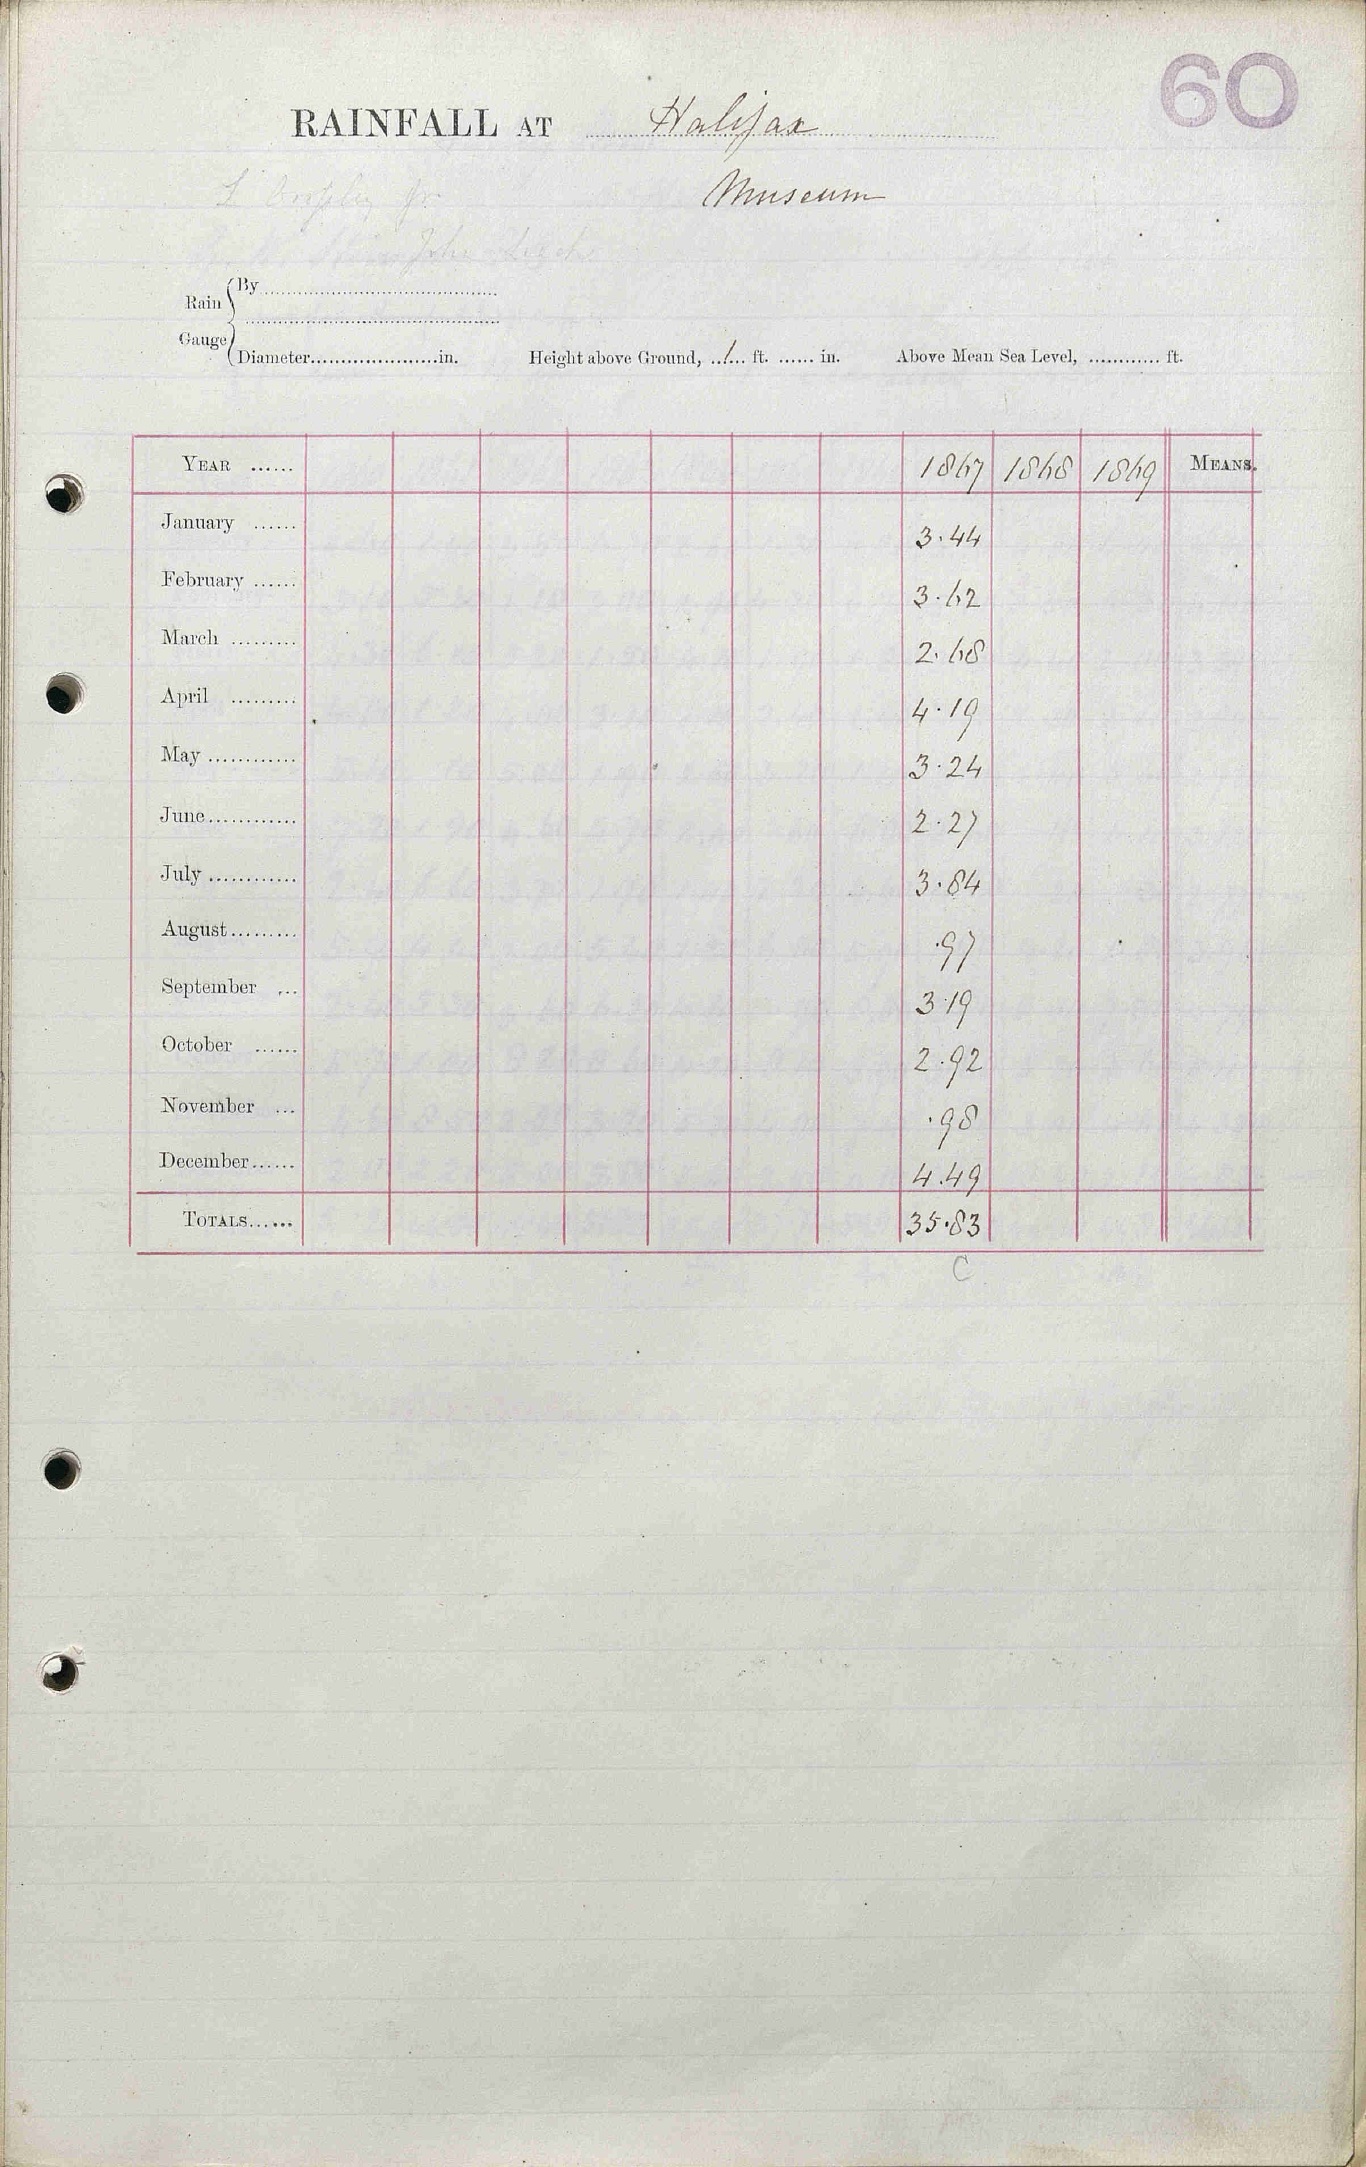 60
RAINFALL AT Halifax
Museum
Rain Gauge { By ........................
........................
Diameter.....................in. Height above Ground, ..1... ft. ...... in. Above Mean Sea Level, ............ ft.
YEAR ...... 1867 1868 1869 MEANS.
January ...... 3.44
February ...... 3.62
March ......... 2.68
April ......... 4.19
May ............ 3.24
June............ 2.27
July ............ 3.84
August......... .97
September ... 3.19
October ...... 2.92
November ... .98
December...... 4.49
TOTALS...... 35.83
C